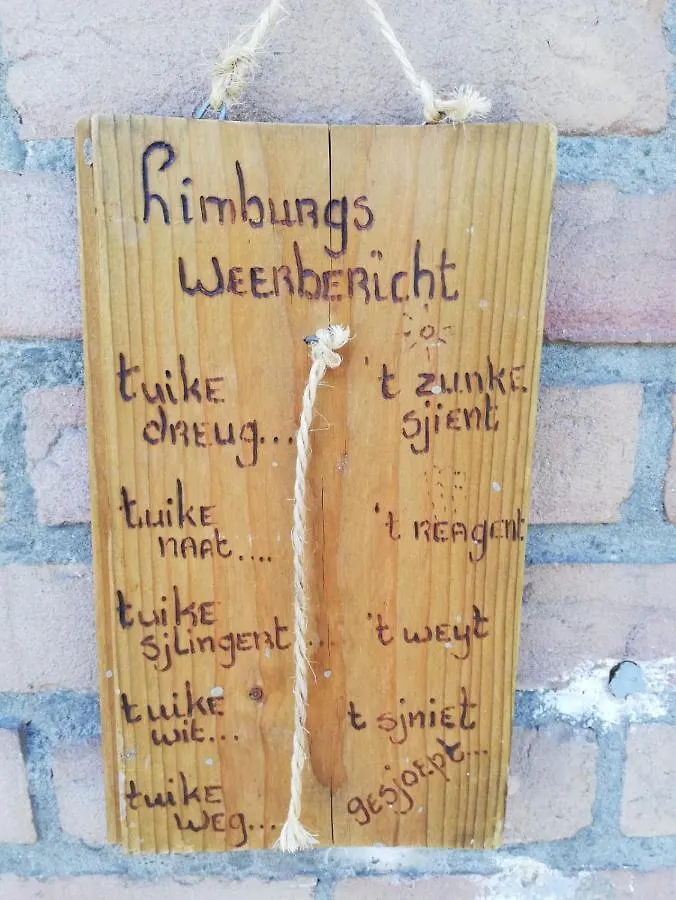 Limburgs
Weerbericht
tuike
dreug...
't zunke
sjient
tuike
naat....
't reagent
tuike
sjlingert...
't weyt
tuike
wit...
't sjniet
tuike
weg...
gesjoept...